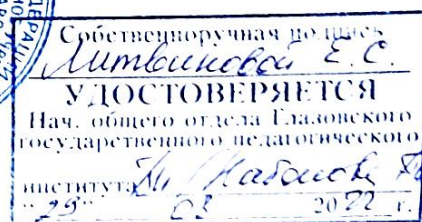 Собственноручная подпись
Литвиновой Е.С.
УДОСТОВЕРЯЕТСЯ
Нач. общего отдела Глазовского
государственного педагогического
института
"29" 03 2022 г.